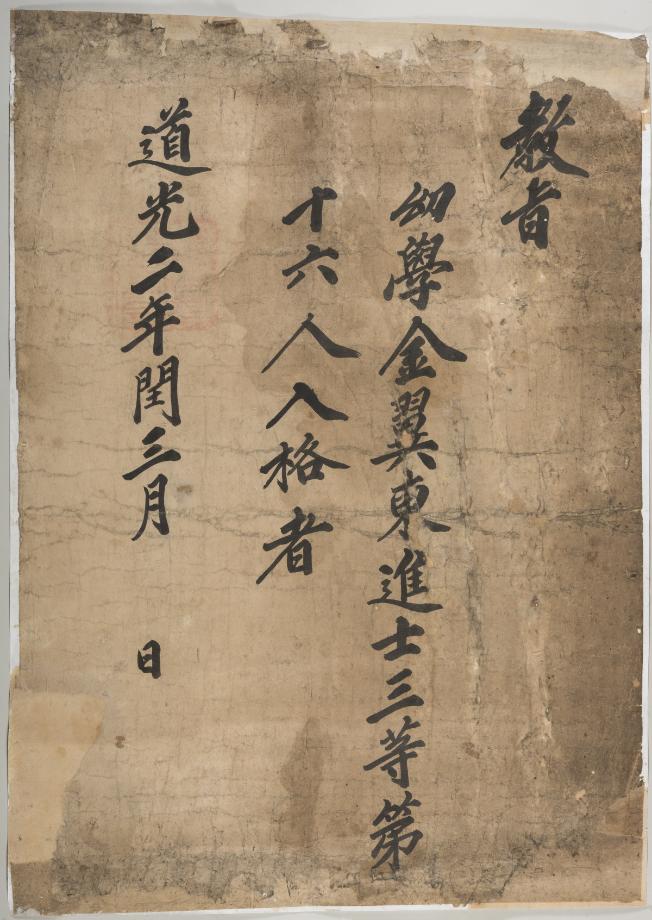 教旨
幼學金翼東進士三等第
十六人入格者
道光二年閏三月 日